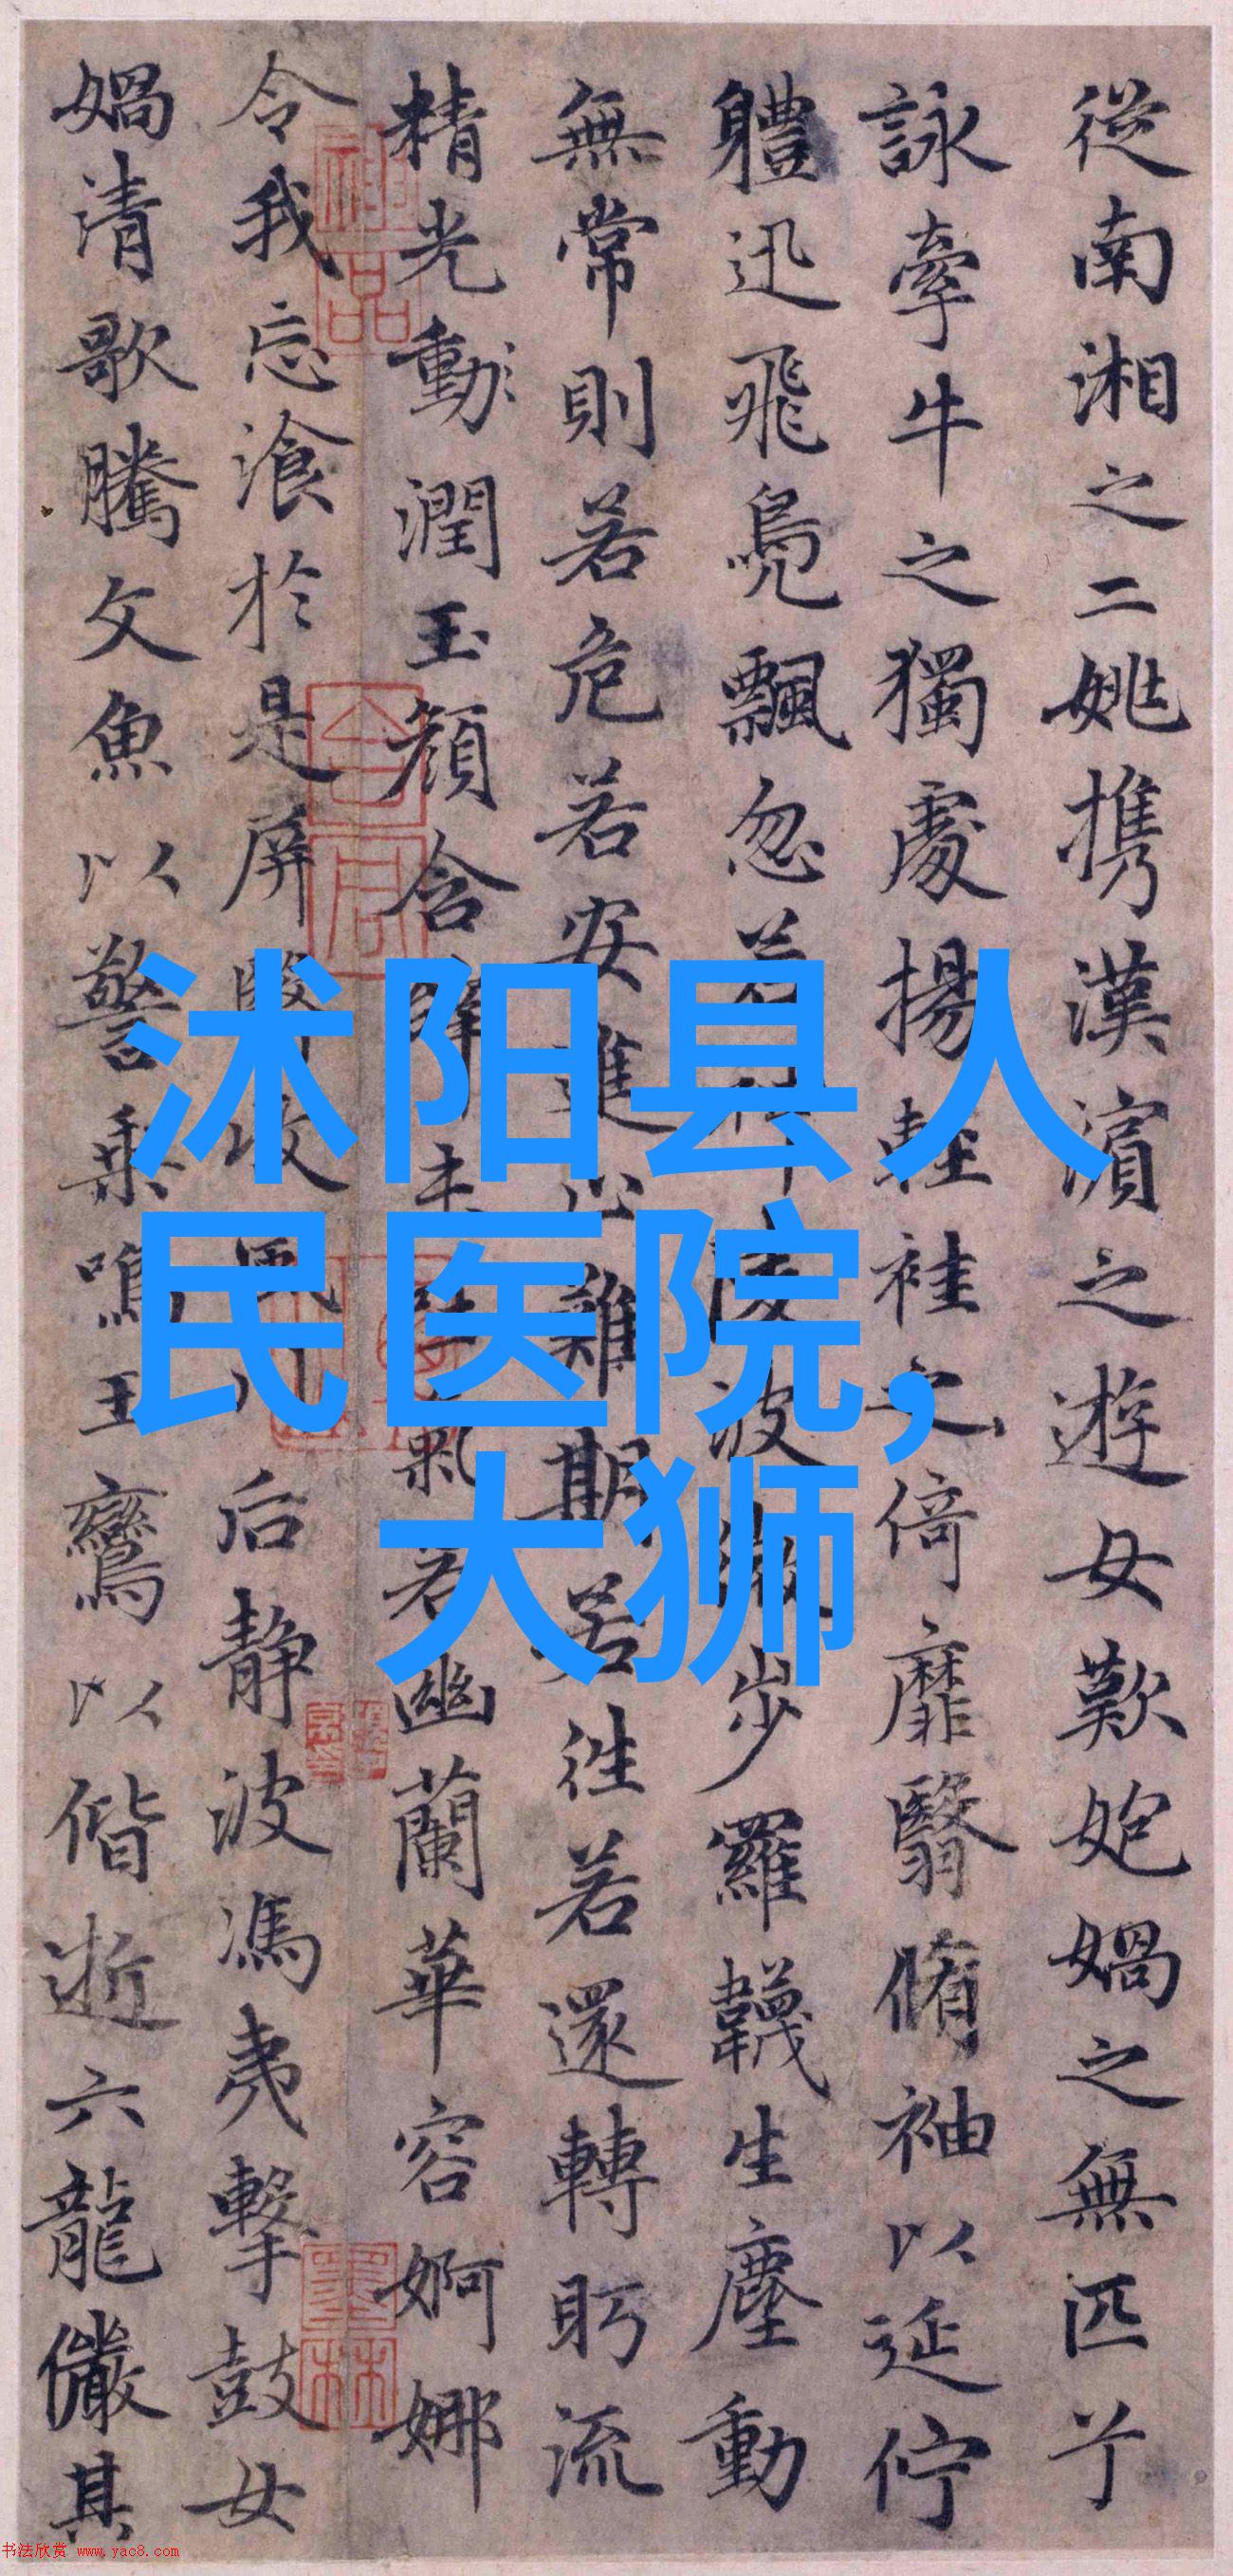 從南湘之二姚携漢濱之遊女歎匏媧之無匹兮
詠牽牛之獨處揚輕袿之倚靡翳脩袖以延佇
軆迅飛鳧飄忽若神陵波微步羅韈生塵動
無常則若危若安進止難期若往若還轉眄流
精光動潤玉顔含辭未吐氣若幽蘭華容婀娜
令我忘飡於是屏翳收風川后静波馮夷擊鼓女
媧清歌騰文魚以警乘鳴玉鸞以偕逝六龍儼其
沭阳县人
民医院,
大狮
书法欣赏 www.yac8.com